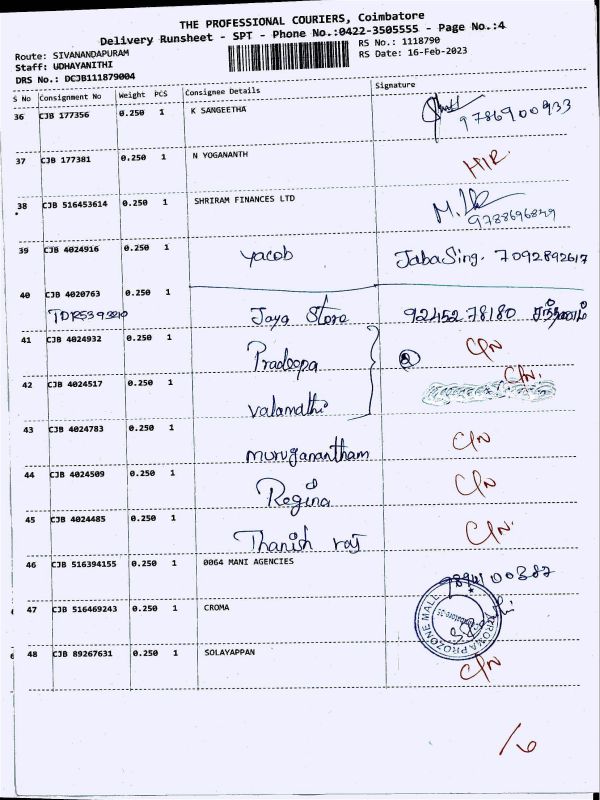 THE PROFESSIONAL COURIERS, Coimbatore
Delivery Runsheet - SPT - Phone No.:0422-3505555 - Page No.:4
Route: SIVANANDAPURAM
RS No.: 1118790
Staff: UDHAYANITHI
RS Date: 16-Feb-2023
DRS No.: DCJB111879004
S No Consignment No Weight PCS Consignee Details Signature
36 CJB 177356 0.250 1 K SANGEETHA 9786900933
37 CJB 177381 0.250 1 N YOGANANTH
38 CJB 516453614 0.250 1 SHRIRAM FINANCES LTD
9788696849
39 CJB 4024916 0.250 1 yacob JabaSing. 7092892617
40 CJB 4020763 0.250 1 Jaya Store 92452 78180
41 CJB 4024932 0.250 1 Pradeepa C/N
42 CJB 4024517 0.250 1 Valamathi C/N.
43 CJB 4024783 0.250 1 muruganantham C/N
44 CJB 4024509 0.250 1 Regina C/N
45 CJB 4024485 0.250 1 Thanish raj C/N.
46 CJB 516394155 0.250 1 0064 MANI AGENCIES
47 CJB 516469243 0.250 1 CROMA
CROMA PROZONE MALL
48 CJB 89267631 0.250 1 SOLAYAPPAN C/N
/6